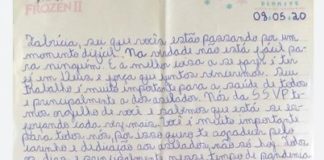 FROZEN II
09.05.20
Fabrícia, sei que vocês estão passando por um
momento difícil. Na verdade não está fácil pa-
ra ninguém. E a melhor coisa a se fazer é ter
fé em Deus e força que juntos venceremos. Seu
trabalho é muito importante para a saúde de todos
e principalmente a dos
Nós da 55
mos orgulho de você e sabemos que está se es-
forçando cada vez mais. Você é muito importante
para todos nós, por isso quero te agradecer pelo
carinho e dedicação
não só hoje, todos
os dias e principalmente nesse tempo de pandemia